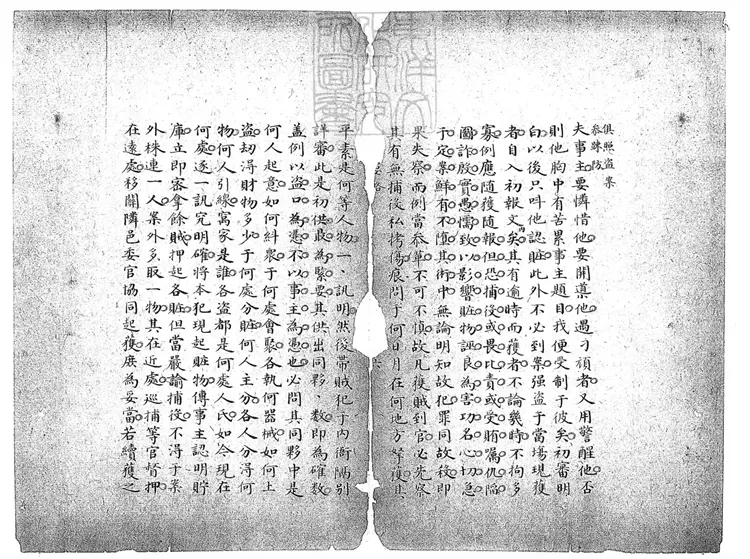 俱照盜案
參疎防
夫事主要憐惜他要開導他遇刁頑者又用警醒他否
則他胸中有苦累事主題目我便受制于彼矣初審明
白以後只叫他認賍此外不必到案强盜于當塲現獲
者自入初報文内矣其有逾時而獲者不論幾時不拘多
寡例應隨獲隨報但恐捕役或畏比責或受賄囑仇陷
圖詐殷實愚懦致以影響賍物誣良為害功名心切急
于定案鮮有不墮其術中無論明知故犯罪同故殺即
果失察而例當叅革不可不慎故凡獲賊到官必先察
其有無捕役私拷傷痕問于何日月在何地方拏獲其
平素是何等人物一一訊明然後帶賊犯于内衙隔別
詳審此是初供最為緊要其供出同夥人數即為確數
蓋例以盜口為憑不以事主為憑也必問其同夥中是
何人起意如何糾衆于何處會聚各執何器械如何上
盜刼淂財物多少于何處分賍何人主分各人分淂何
物何人引線窩家是誰各盜都是何處人氏如今現在
何處逐一訊究明確將本犯現起賍物傳事主認明貯
庫立即密拿餘賊押起各賍但當嚴諭捕役不得于案
外株連一人案外多取一物其在近處巡捕等官督押
在遠處移關隣邑委官協同起獲庻為妥當若續獲之